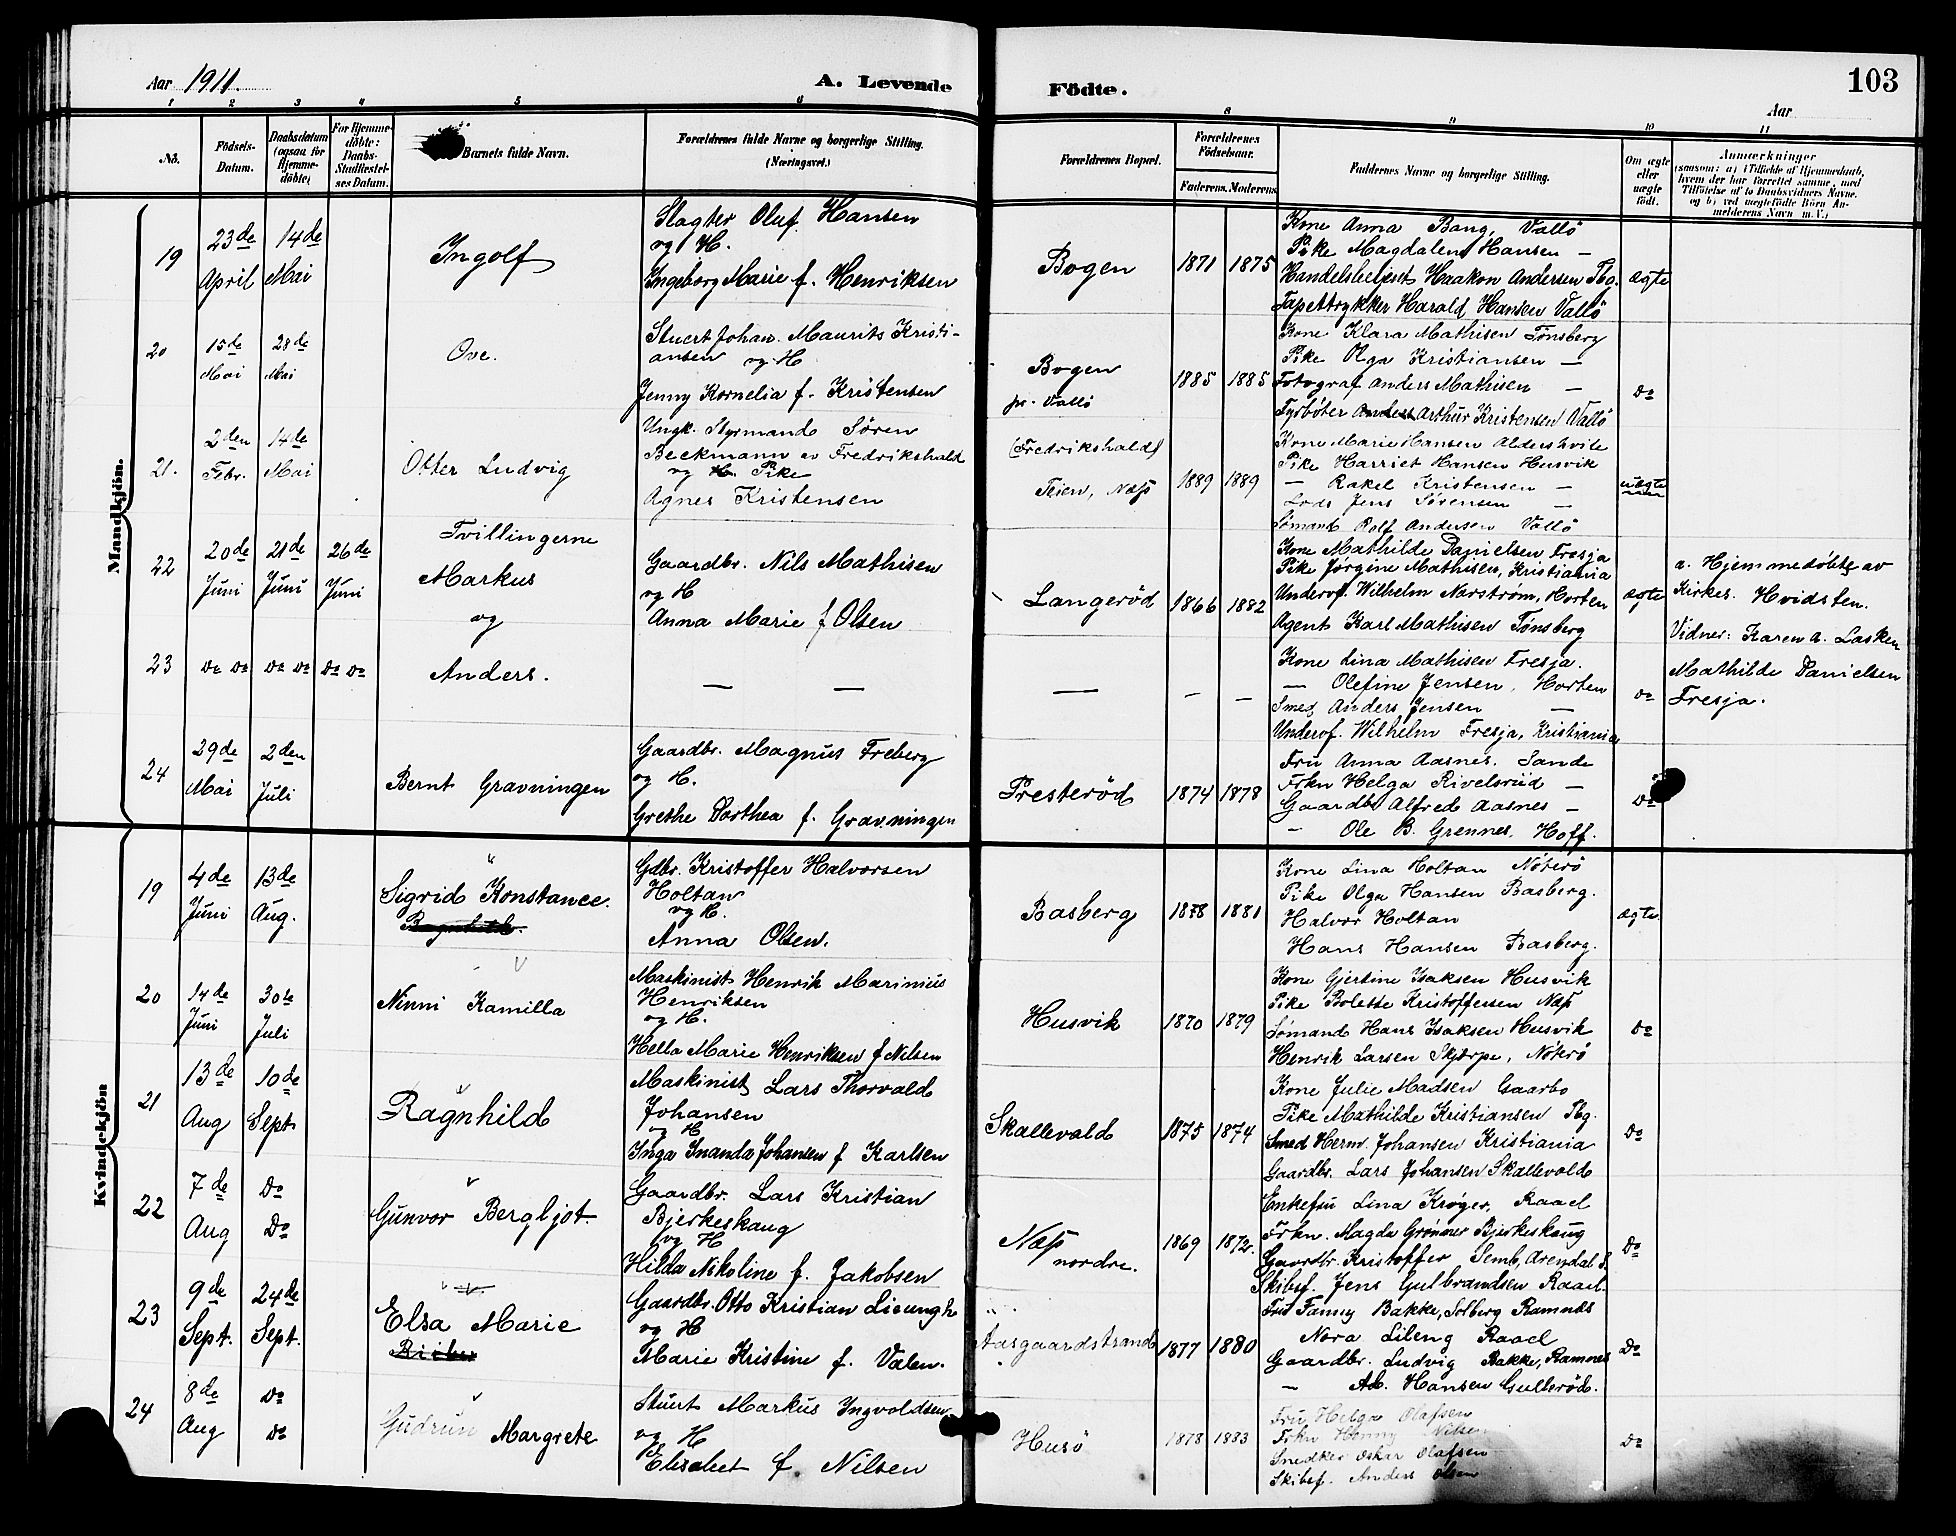 Aar 1911.
A. Levende Födte.
103
Aar
1 2 3 4 5 6 8 9 10 11
No.
Födsels-Datum.
Daabsdatum (ogsaa for Hjemmedöbte)
For Hjemmedöbte: Daabs-Stadfæstelses Datum.
Barnets fulde Navn.
Forældrenes fulde Navne og borgerlige Stilling. (Næringsvei.)
Forældrenes Bopæl.
Forældrenes Födselsaar.
Faderens. Moderens.
Faddernes Navne og borgerlige Stilling.
Om ægte eller uægte födt.
Anmærkninger
(saasom: a) i Tilfælde af Hjemmedaab, hvem der har forrettet samme, med Tilföielse af to Daabsvidners Navne, og b) ved uægtefödte Börn Anmelderens Navn m. V.)
Mandkjön.
19
23de April
14de Mai
Ingolf
Slagter Oluf Hansen
og H.
Ingeborg Marie f. Henriksen
Bogen
1871 1875
Kone Anna Bang, Vallö
Pike Magdalene Hansen —
Handelsbetjent Haakon Andersen Tbg.
Tapettrykker Harald Hansen Vallö
ægte
20
15de Mai
28de Mai
Ove.
Stuert Johan Maurits Kristi-
ansen og H.
Jenny Kornelia f. Kristensen
Bogen
pr. Vallö
1885 1885
Kone Klara Mathisen Tønsberg
Pike Olga Kristiansen —
Fotograf Anders Mathisen —
Fyrbøter Arthur Kristensen Vallö
Do
21.
2den Febr.
14de Mai
Otter Ludvig
Ungk. Styrmand Sören
Beckmann av Fredrikshald
og Pike
Agnes Kristensen
(Fredrikshald)
Teien, Næs
1889 1889
Kone Marie Hansen Aldershvile
Pike Harriet Hansen Husvik
— Rakel Kristensen —
Lods Jens Sørensen —
Sømand Rolf Andersen Vallö
uægte
22
20de Juni
21de Juni
26de Juni
Tvillingerne
Markus
og
Gaardbr. Nils Mathisen
og H
Anna Marie f Olsen
Langerød
1866 1882
Kone Mathilde Danielsen Fresja
Pike Jørgine Mathisen, Kristiania
Underof. Wilhelm Norstrøm, Horten
Agent Karl Mathisen Tønsberg
ægte
a. Hjemmedøbte av
Kirkes. Hvidsten.
Vidner: Karen A. Lasken
Mathilde Danielsen
Fresja.
23
Do Do
Do Do
Do Do
Anders.
— —
—
— —
Kone Lina Mathisen Fresja.
— Olefine Jensen, Horten
Smed Anders Jensen —
Underof. Wilhelm Fresja, Kristiania
Do
24
29de Mai
2den Juli
Bernt Gravningen
Gaardbr. Magnus Freberg
og H.
Grethe Dorthea f. Gravningen
Presterød
1874 1878
Fru Anna Aasnes, Sande
Frkn Helga Rivelsrud —
Gaardbr Alfred Aasnes —
— Ole B. Grennes, Hoff.
Do
Kvindekjön
19
4de Juni
13de Aug.
Sigrid Konstance.
Gdbr. Kristoffer Halvorsen
Holtan
og H.
Anna Olsen.
Basberg
1878 1881
Kone Lina Holtan Nöterö
Pike Olga Hansen Basberg.
Halvor Holtan
Hans Hansen Basberg.
ægte
20
14de Juni
30te Juli
Ninni Kamilla
Maskinist Henrik Marinius
Henriksen
og H.
Hella Marie Henriksen f Nilsen
Husvik
1870 1879
Kone Gjertine Isaksen Husvik
Pike Bolette Kristoffersen Næs
Sömand Hans Isaksen Husvik
Henrik Larsen Skjærpe, Nöterö
Do
21
13de Aug
10de Sept.
Ragnhild
Maskinist Lars Thorvald
Johansen
og H
Inga Inanda Johansen f Karlsen
Skallevald
1875 1874
Kone Julie Madsen Gaarbo
Pike Mathilde Kristiansen Tbg.
Smed Herm. Johansen Kristiania
Gaardbr. Lars Johansen Skallevold
Do
22
7de Aug
Do Do
Gunvor Bergljot.
Gaardbr. Lars Kristian
Bjerkeskaug
og H
Hilda Nikoline f. Jakobsen
Næs
nordre.
1869 1872.
Enkefru Lina Krøger, Raael
Frkn. Magda Grønner Bjerkeskaug
Gaardbr. Kristoffer Semb, Arendal
Skibsf. Jens Gulbrandsen Raael.
Do
23
9de Sept.
24de Sept.
Elsa Marie
Gaardbr. Otto Kristian Lieungh
og H
Marie Kristine f. Valen.
Aasgaardstrand
1877 1880
Fru Fanny Bakke, Solberg Ramnæs
Nora Lileng Raael
Gaardbr. Ludvig Bakke, Ramnes
— Ad. Hansen Gullerød.
Do
24
8de Aug
Do Do
Gudrun Margrete
Stuert Markus Ingvoldsen
og H
Elisabet f. Nilsen
Husö
1878 1883
Fru Helga Olafsen
Frkn Henny Nilsen
Snedker Oskar Olafsen
Skibsf. Anders Olsen
Do